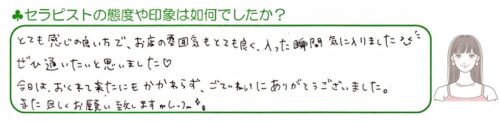 ♣セラピストの態度や印象は如何でしたか?
とても感じの良い方で、お店の雰囲気もとても良く、入った瞬間気に入りました
ぜひ通いたいと思いました♡
今日は、おくれて来たにもかかわらず、ごていねいにありがとうございました。
また宜しくお願い致しますm(_ _)m